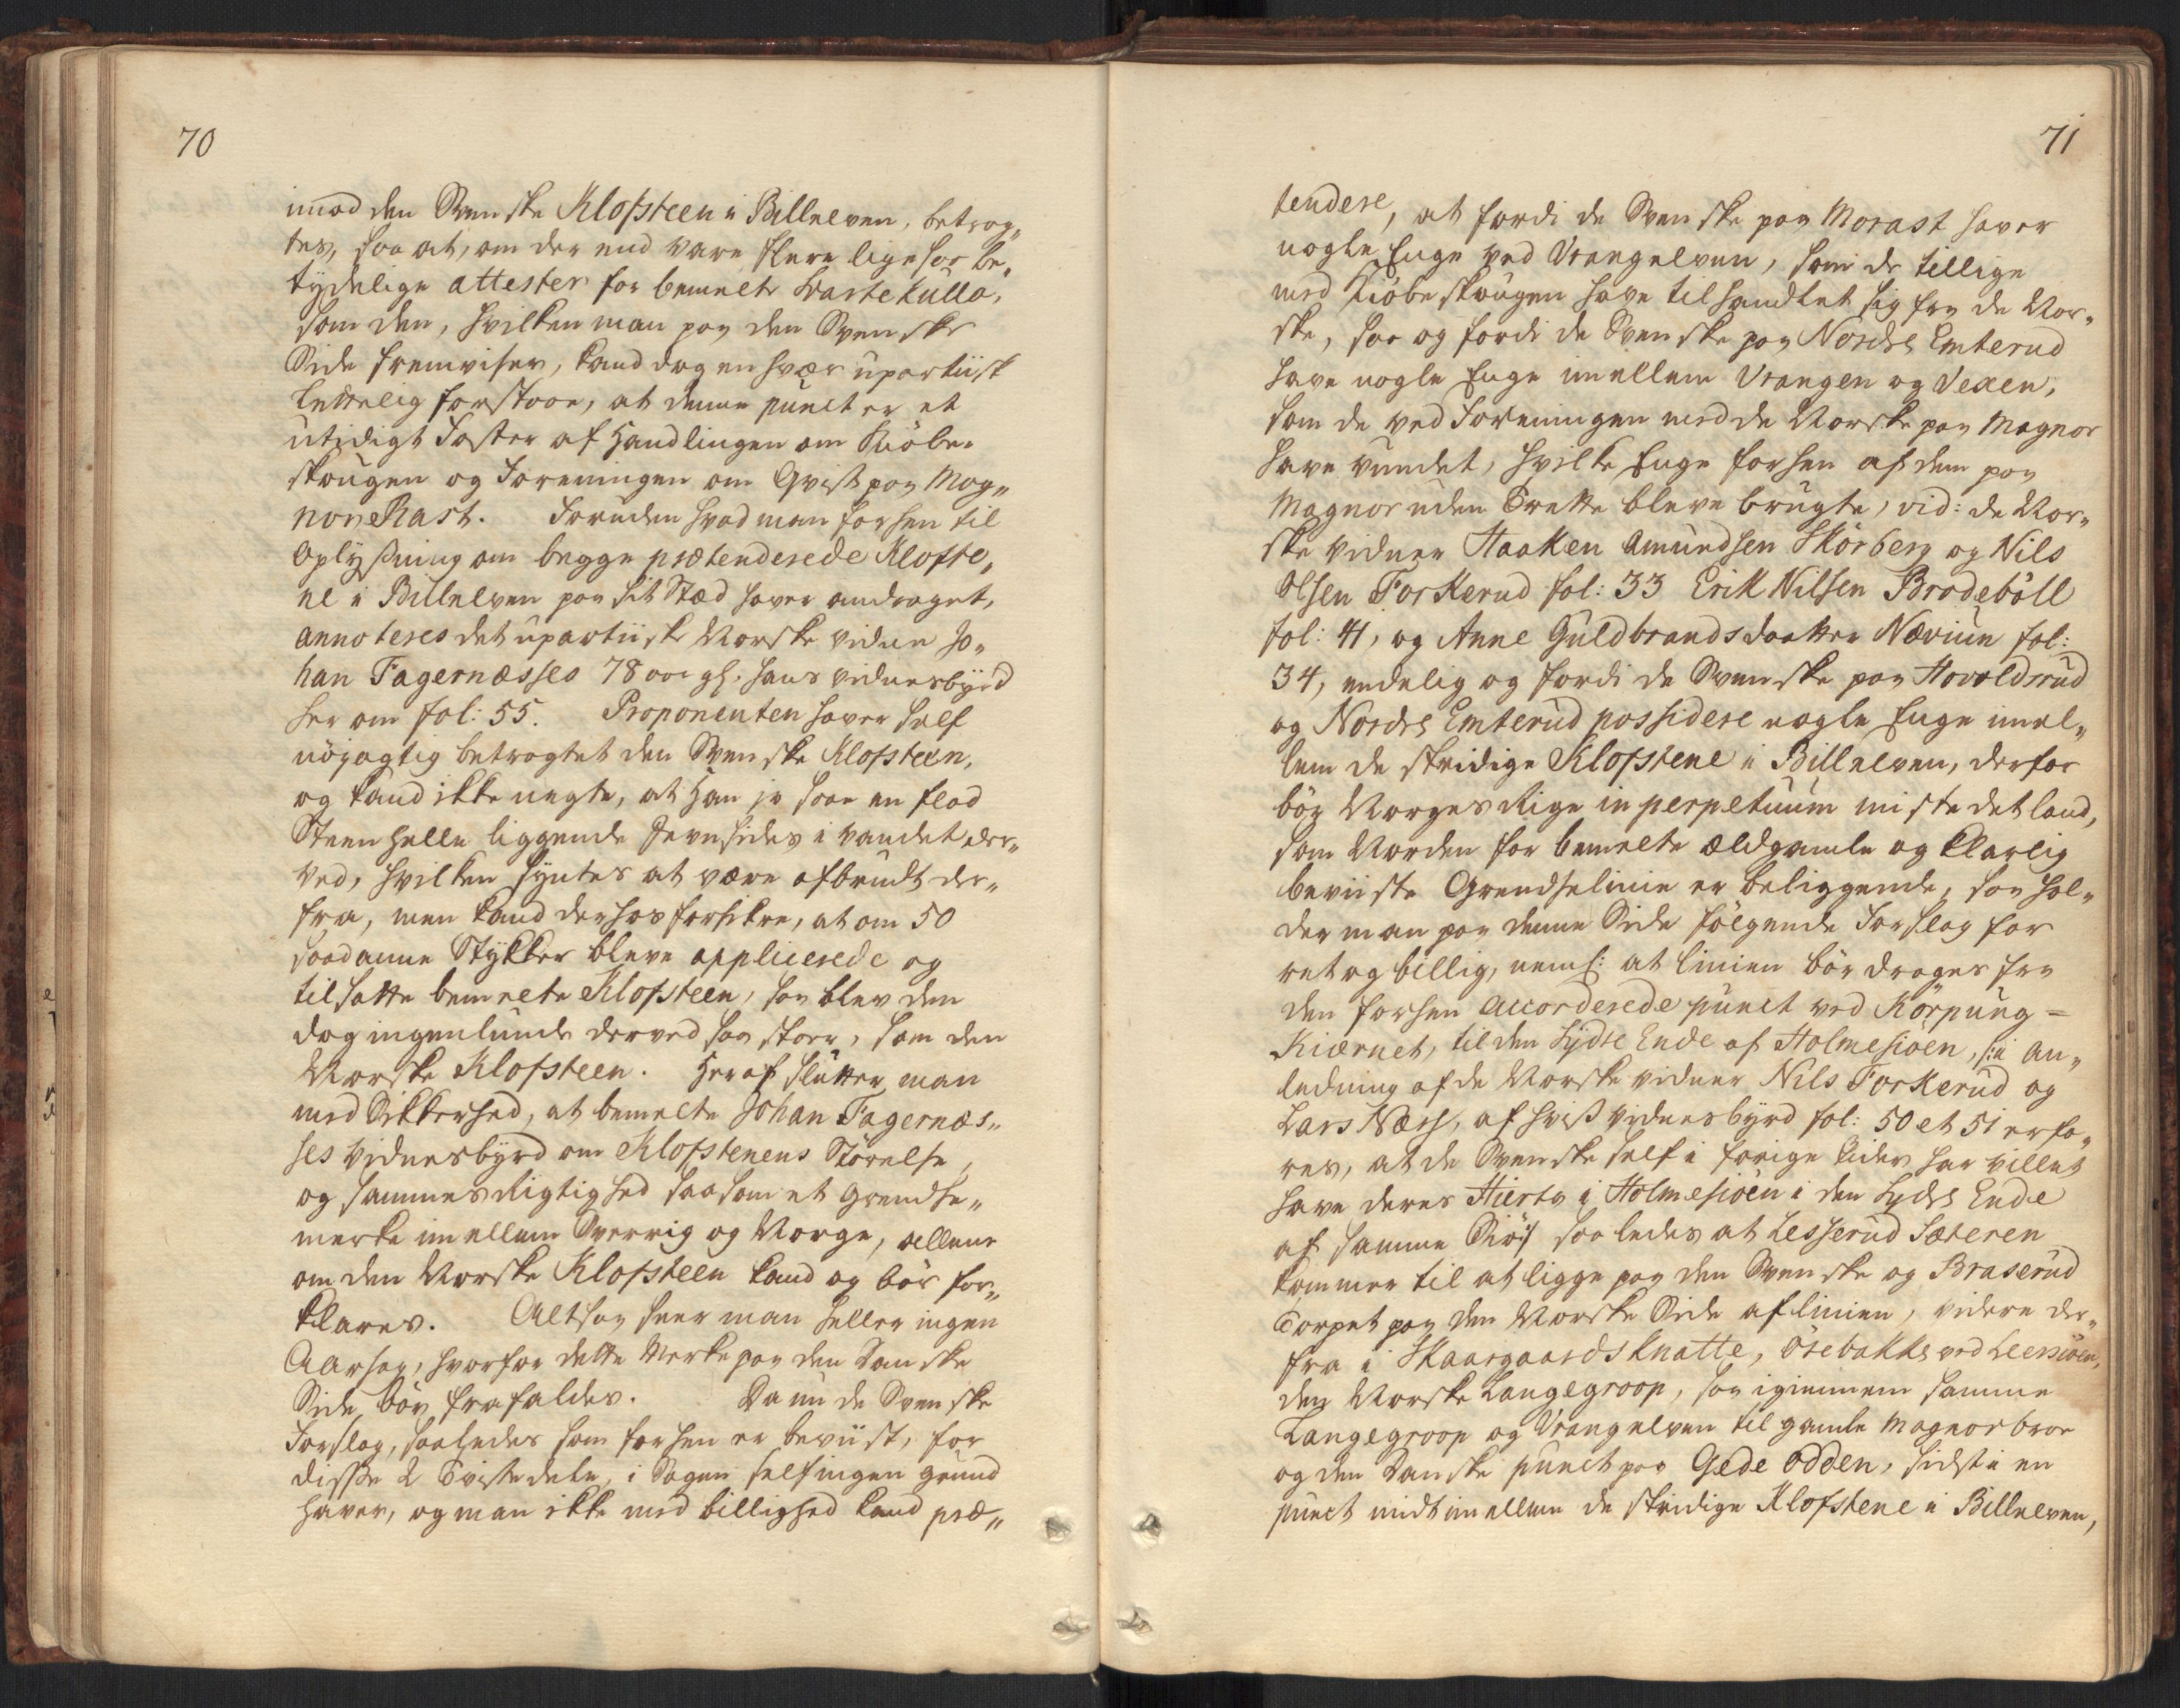 70
imod den Svenske Klofsteen i Billelven, betrag„
tes, saa at, om der end vare flere ligesaa be„
tydelige attester for bemelte Svarte Kulla,
som den, hvilken man paa den Svenske
Side fremviser, kand dog en hvær upartiisk
lettelig forstaae, at denne punct er et
utidigt Foster af Handlingen om Kiöbe„
skougen og Foreningen om Qvist paa Mag„
nor Rast. Foruden hvad man forhen til
Oplysning om begge prætenderede Klofste„
ne i Billelven paa sit Stæd haver andraget,
annoteres det upartiiske Norske vidne Jo„
han Fagernæsses 78 aar gl. hans vidnesbyrd
her om fol: 55. Proponenten haver self
nöyagtig betragtet den Svenske Klofsteen,
og kand ikke negte, at Han jo saae en flad
Steen Helle liggende Jevnsides i vandet der„
ved, hvilken syntes at være afbrudt der„
fra, men kand derhos forsikre, at om 50
saadanne Stykker bleve applicerede og
tilsatte bemelte Klofsteen, saa blev den
dog ingenlunde derved saa stoer, som den
Norske Klofsteen. Heraf slutter man
med Sikkerhed, at bemelte Johan Fagernæs„
ses vidnesbyrd om Klofstenens Störelse,
og sammes Rigtighed saasom et Grendse„
merke imellem Sverrig og Norge, allene
om den Norske Klofsteen kand og bör for„
klares. Altsaa seer man heller ingen
Aarsag, hvorfor dette Merke paa den Danske
Side bör frafaldes. Da nu de Svenske
Forslag, saaledes som forhen er beviist, for
disse 2 Tvistedele, i Sagen self ingen grund
haver, og man ikke med billighed kand præ„
71
tendere, at fordi de Svenske paa Morast haver
nogle Enge ved Vrangelven, som de tillige
med Kiöbeskougen have tilhandlet sig fra de Nor„
ske, saa og fordi de Svenske paa Nordre Emterud
have nogle Enge imellem Vrangen og Vexen,
som de ved Foreningen med de Norske paa Magnor
have vundet, hvilke Enge forhen af dem paa
Magnor uden Trette bleve brugte, vid: de Nor„
ske vidner Haaken Amundsen Skörberg og Nils
Olsen Forkerud fol: 33 Erik Nilsen Brodeböll
fol: 41, og Anne Guldbrandsdaatter Næviun fol:
34, endelig og fordi de Svenske paa Hovoldrud
og Nordre Emterud possidere nogle Enge imel„
lem de stridige Klofstene i Billelven, derfor
bör Norges Rige in perpetuum miste det land,
som Norden for bemelte ældgamle og klarlig
beviiste Grendselinie er beliggende, saa hol„
der man paa denne Side fölgende Forslag for
ret og billig, neml: at linien bör drages fra
den forhen accorderede punct ved Körpung=
Kiærnet, til den Sydre Ende af Holmesiöen, /:i An„
ledning af de Norske vidner Nils Forkerud og
Lars Næss, af hvis vidnesbyrd fol: 50 et 51 erfa„
res, at de Svenske self i forige tider har villet
have deres Hierta i Holmesiöen i den Sydre Ende
af samme Siö:/ saaledes at Lesserud Sæteren
kommer til at ligge paa den Svenske og Braserud
Torpet paa den Norske Side af linien, videre der„
fra i Skaargaards Knatte, Örebakke ved Leersiöen,
den Norske Langegroop, saa igiennem samme
Langegroop og Vrangelven til gamle Magnor broe
og den Danske punct paa Gede Odden, sidst i en
punct midt imellem de stridige Klofstene i Billelven,